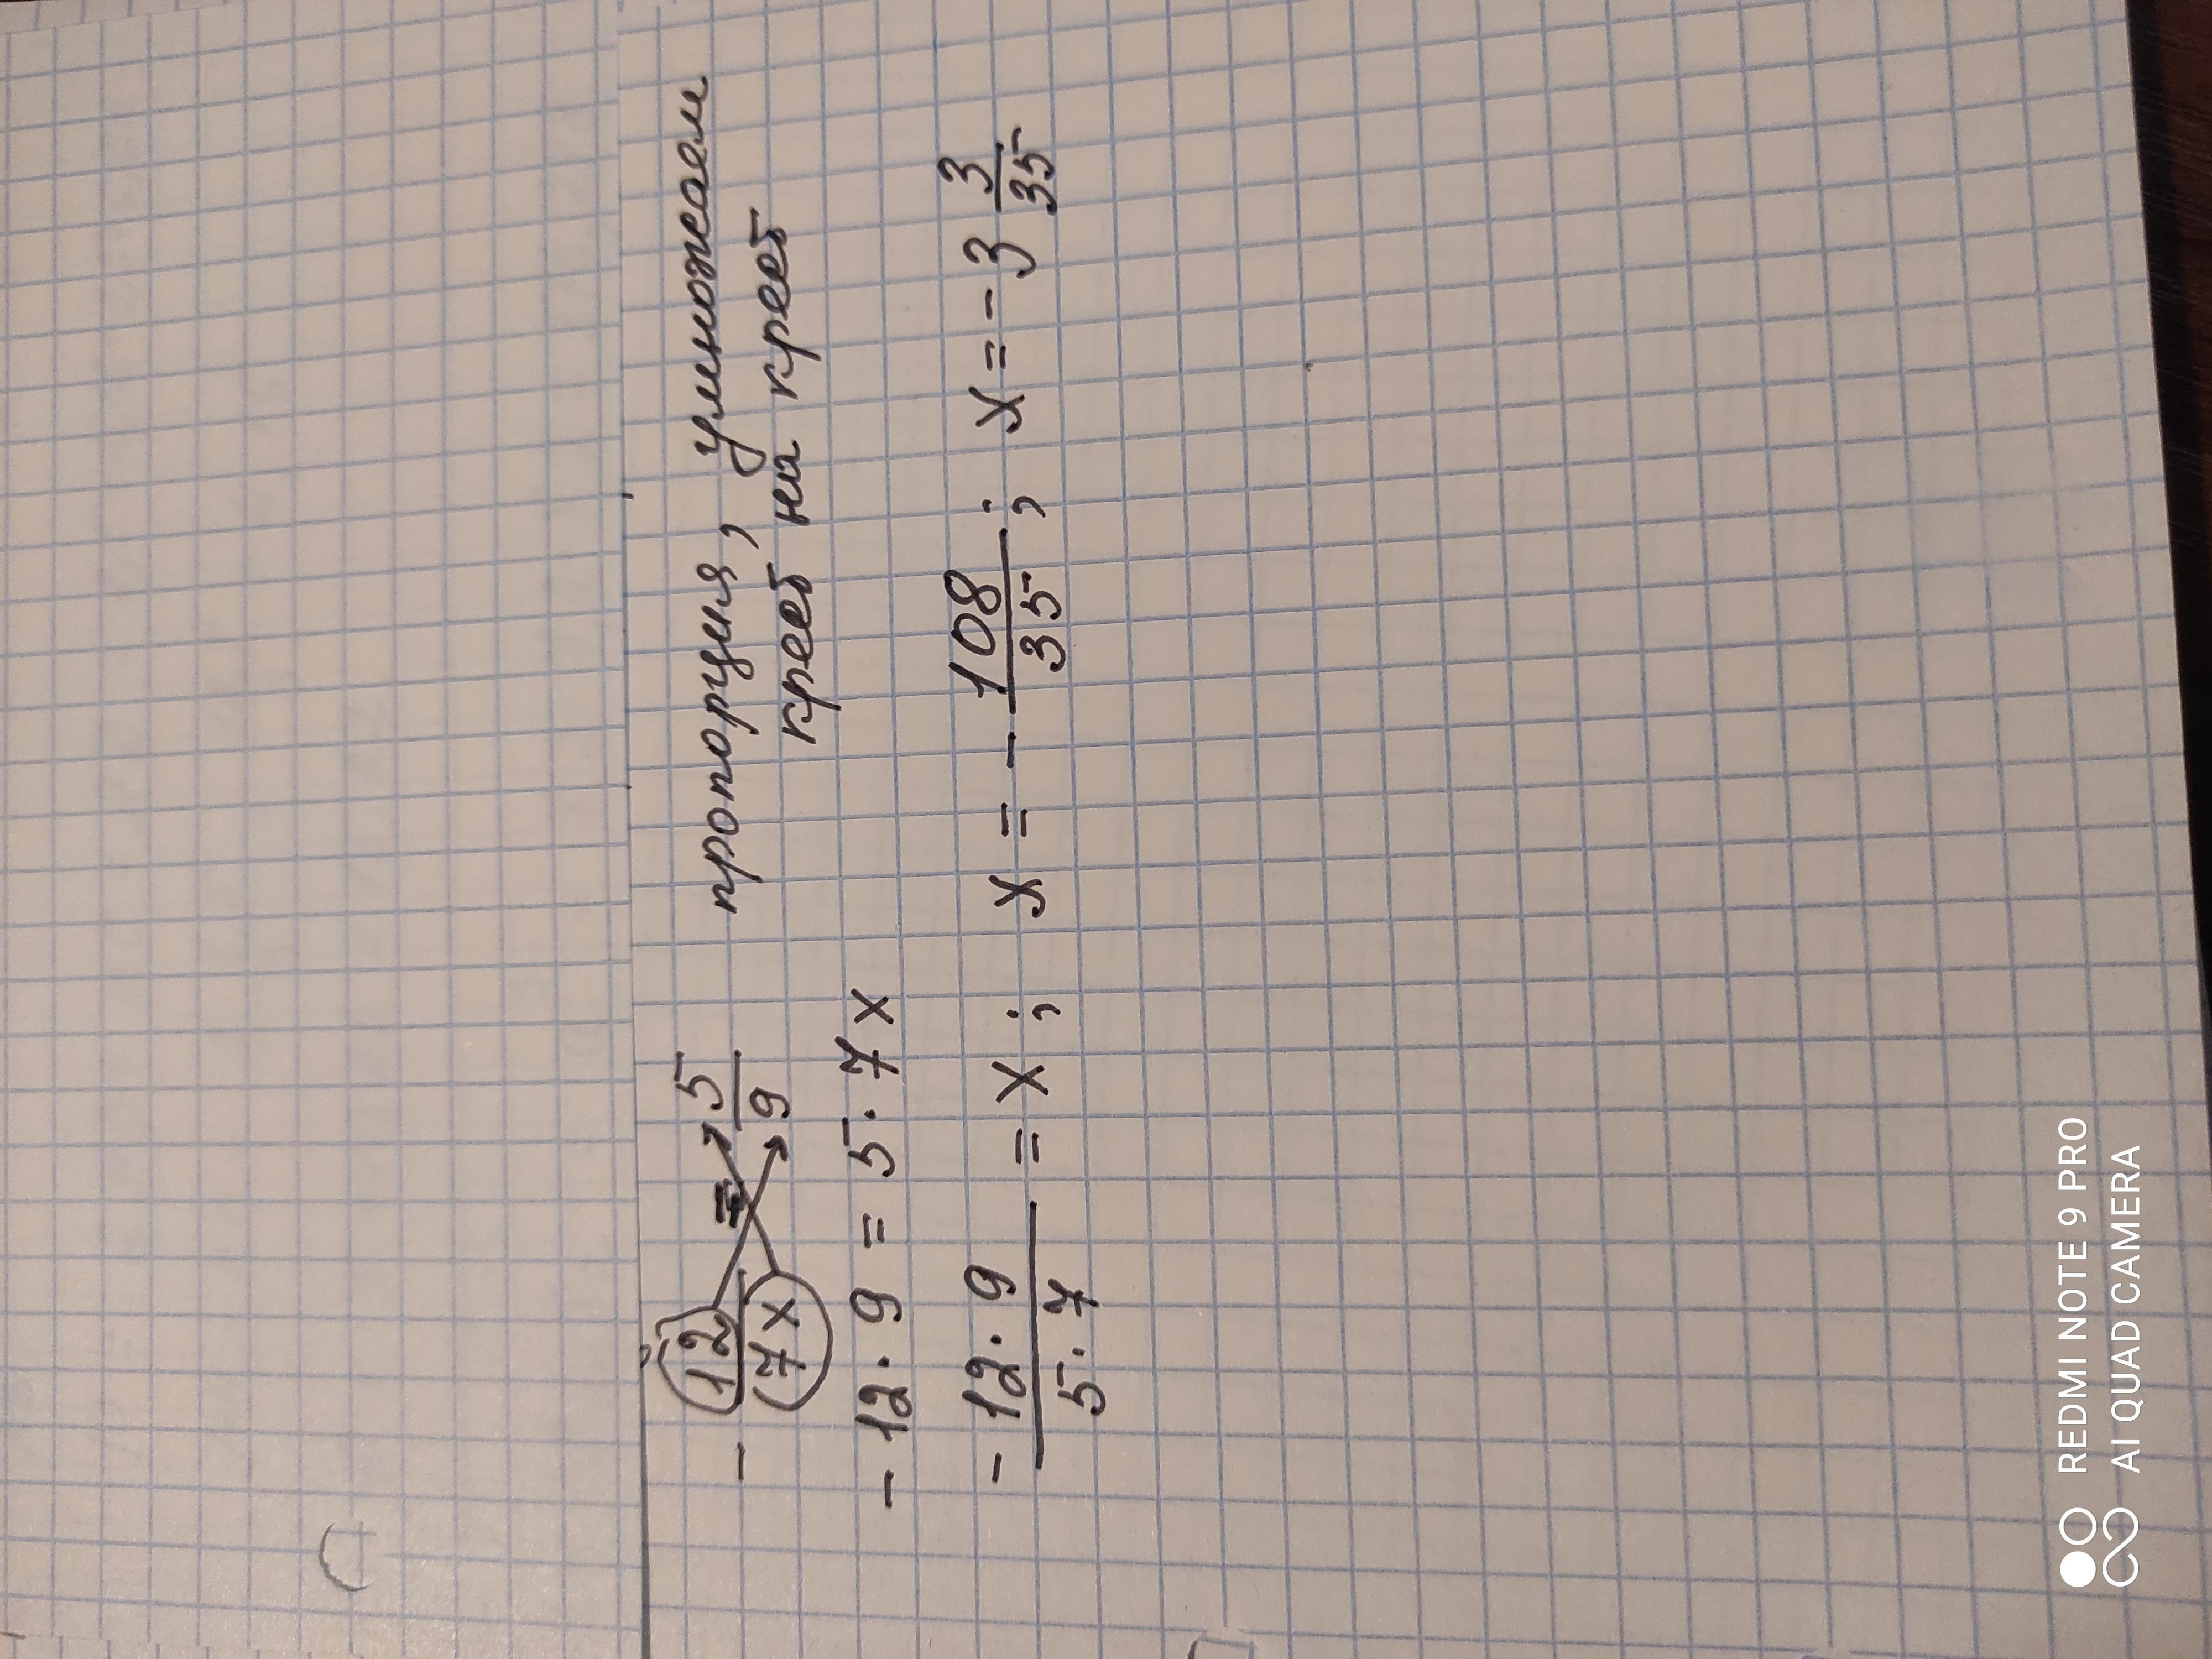 - 12/7x = 5/9 пропорция, умножаем
крест на крест
- 12 · 9 = 5 · 7x
- 12 · 9 / 5 · 7 = x; x = - 108/35; x = - 3 3/35
REDMI NOTE 9 PRO
AI QUAD CAMERA